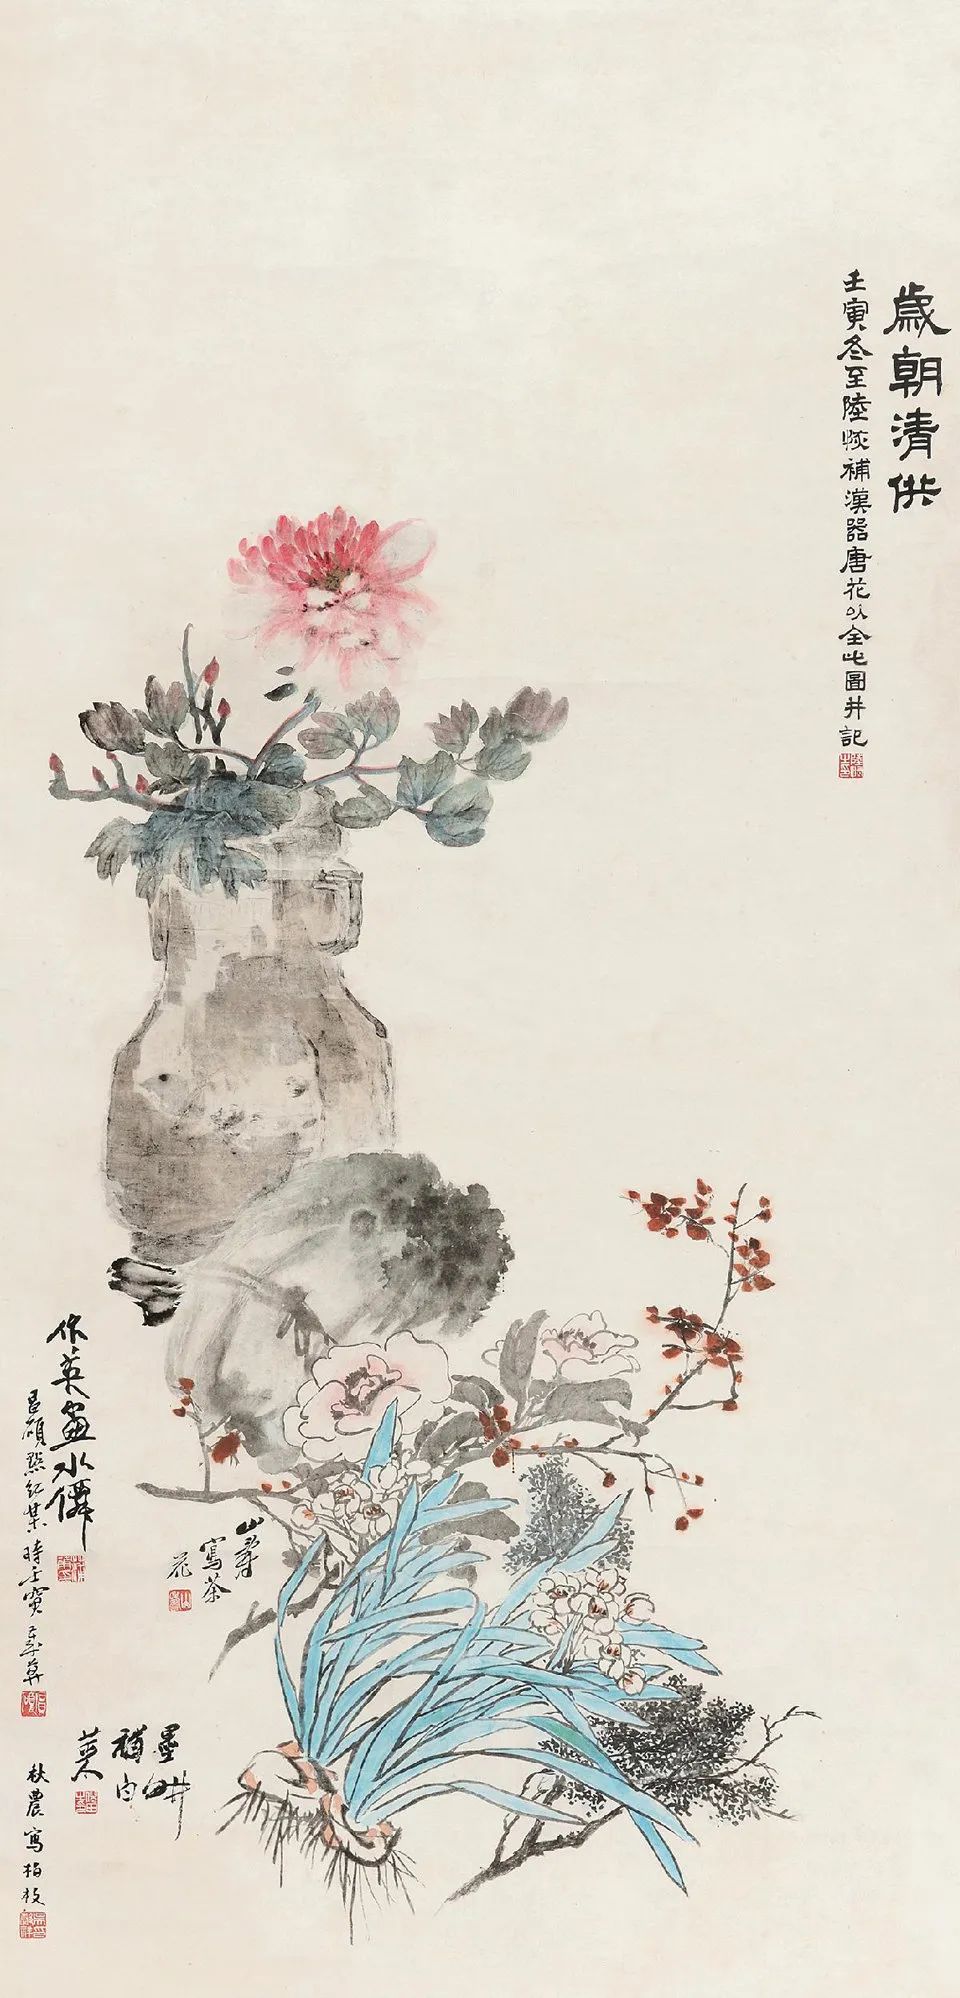 歲朝清供
壬寅冬至陸恢補漢器唐花以全此圖并記
作英畫水僊
昌碩點紅某時壬寅
山壽
寫茶
花
墨畊
補白
秋農寫柏枝